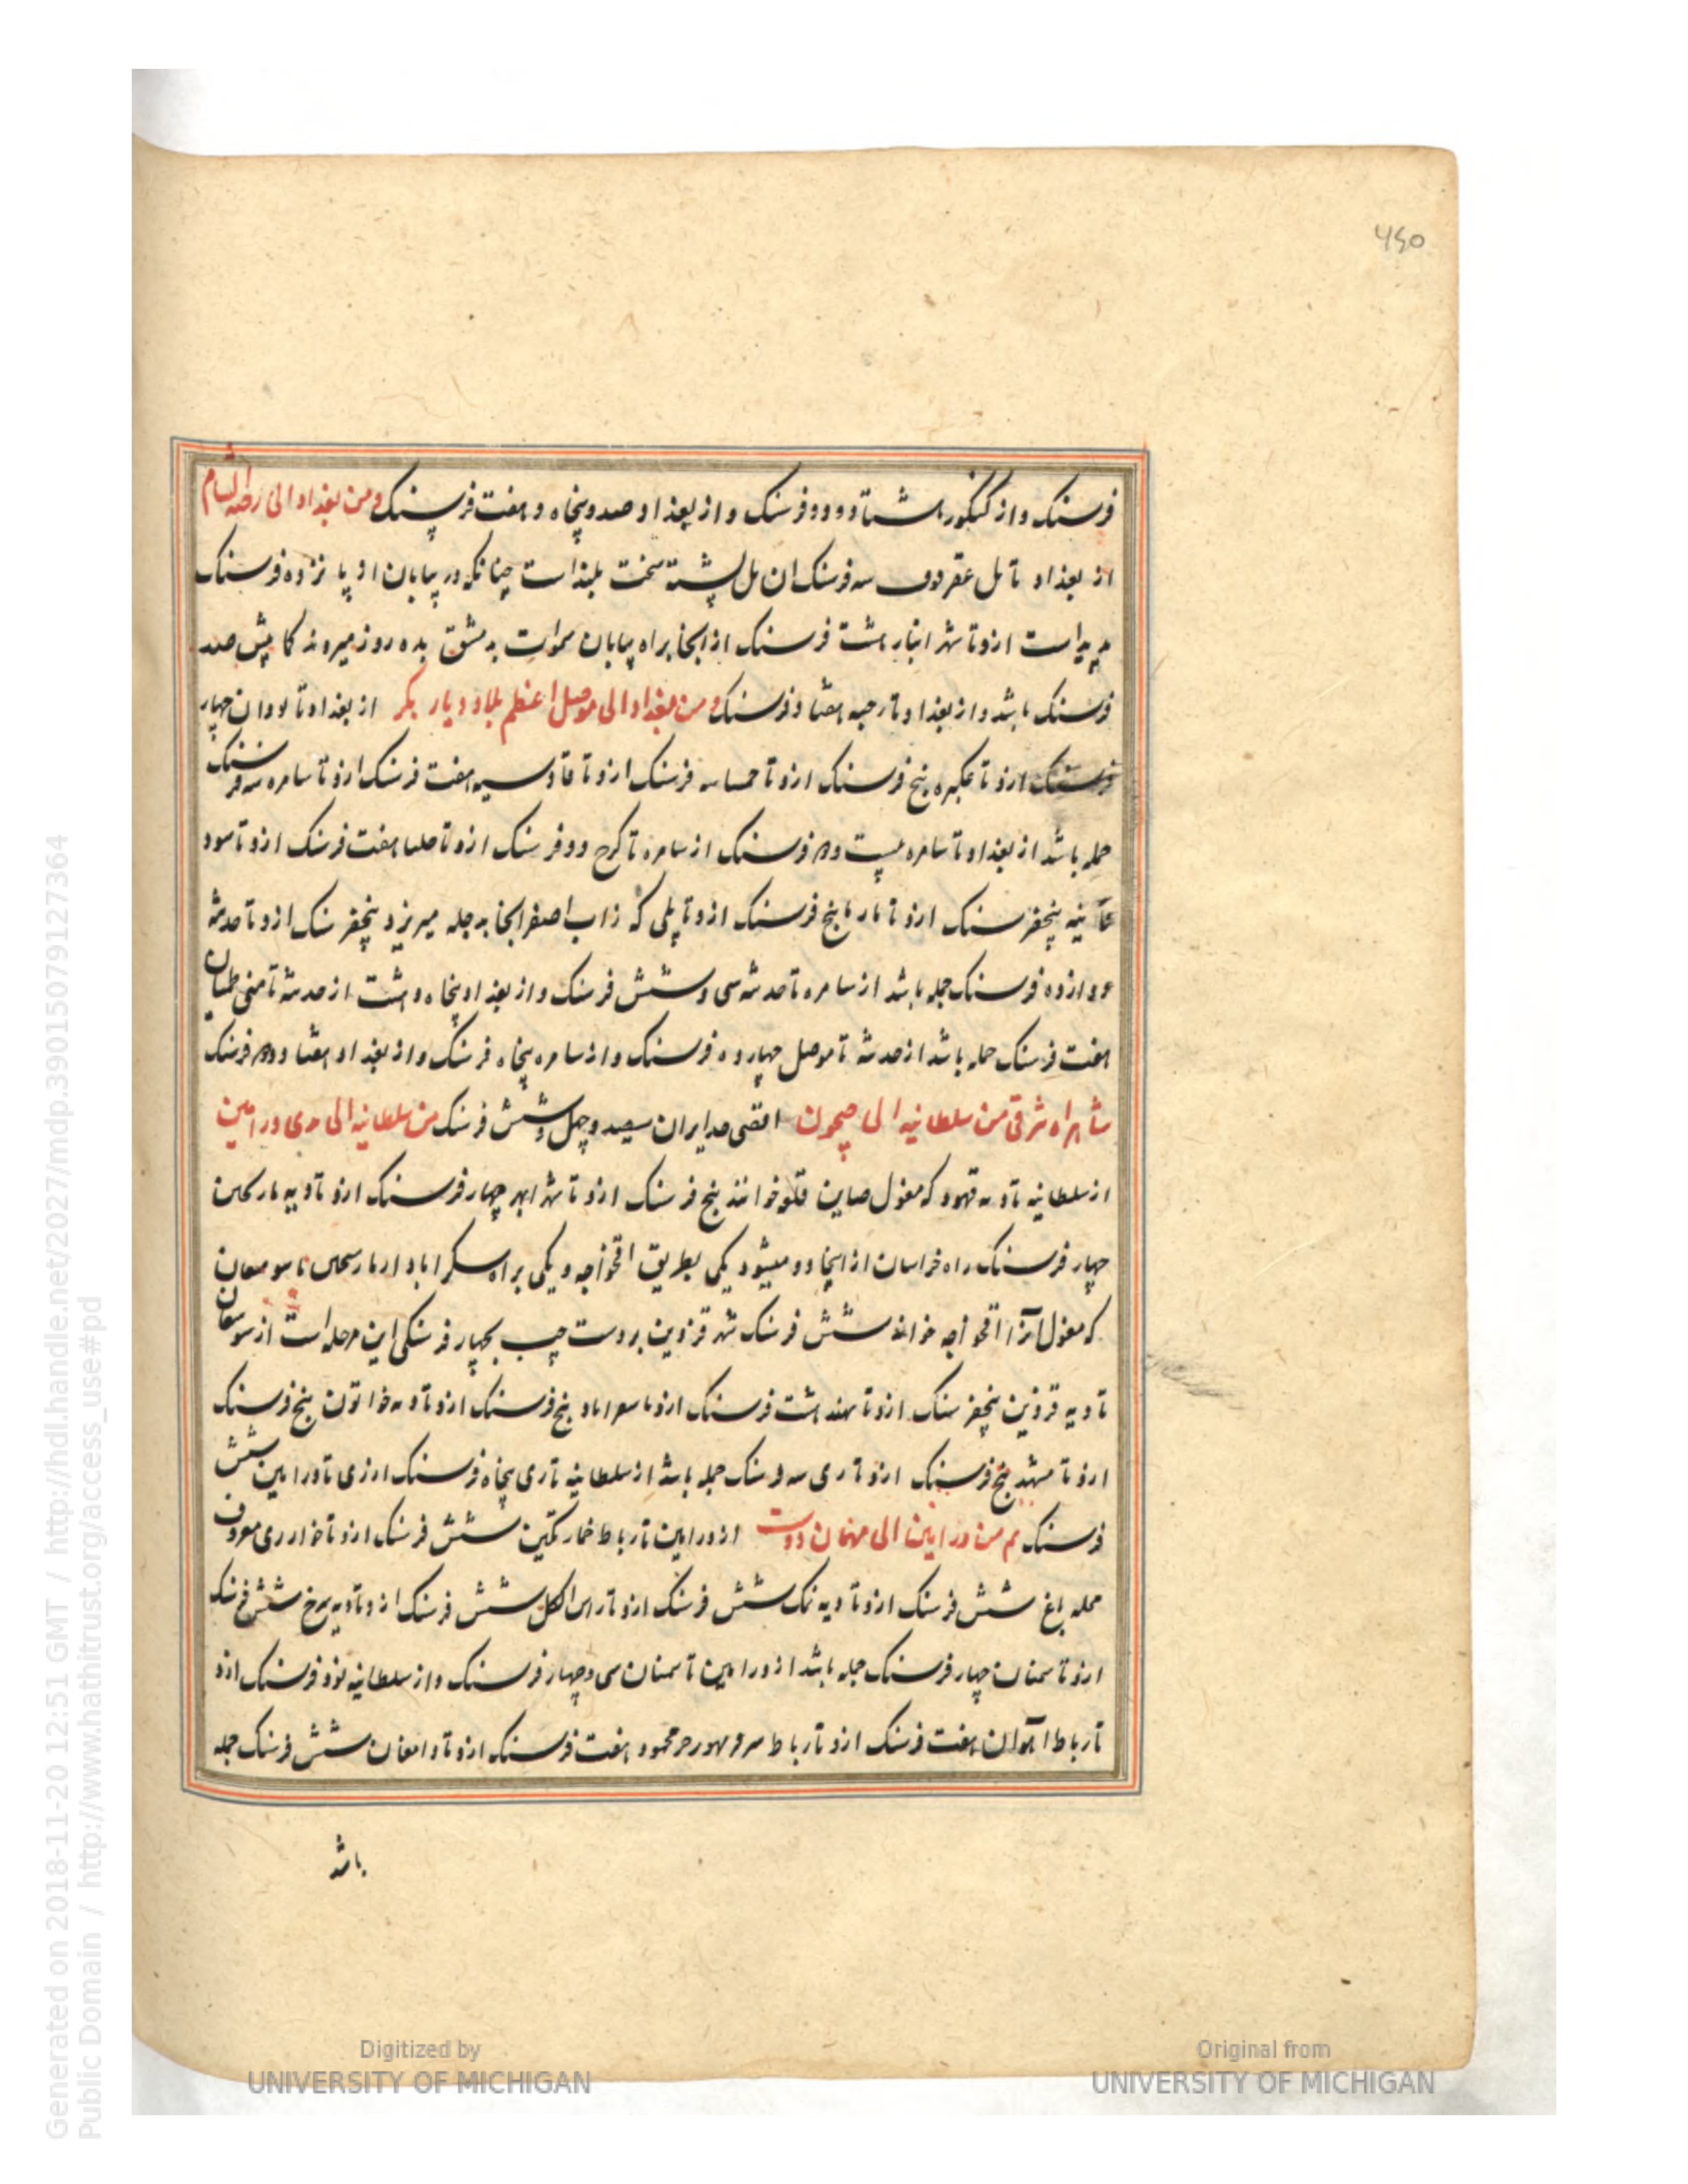 ۴۶۰
فرسنک و از کنکور هشتاد و دو فرسنک و از بغداد صد و پنجاه و هفت فرسنک و من بغداد الی رحبة الشام
از بغداد تا تل عقرقوف سه فرسنک ان تل پشته سخت بلند است چنانکه در بیابان از پانزده فرسنک
پیداست ازو تا شهر انبار هشت فرسنک از انجا براه بیابان سموات بدمشق بده روز میروند کما بیش صد
فرسنک باشد و از بغداد تا رحبه هفتاد فرسنک و من بغداد الی موصل اعظم بلاد دیار بکر از بغداد تا بردان چهار
فرسنک ازو تا عکبره پنج فرسنک ازو تا حمسا سه فرسنک ازو تا قادسیه هفت فرسنک ازو تا سامره سه فرسنک
جمله باشد از بغداد تا سامره بیست و دو فرسنک از سامره تا کرخ دو فرسنک ازو تا حلسا هفت فرسنک ازو تا سود
قانیه پنجفرسنک ازو تا بارما پنج فرسنک ازو تا پلی که زاب اصغر انجا بدجله میریزد پنجفرسنک ازو تا حدیثه
دوازده فرسنک جمله باشد از سامره تا حدیثه سی و شش فرسنک و از بغداد پنجاه و هشت از حدیثه تا منی طهمان
هفت فرسنک جمله باشد از حدیثه تا موصل چهارده فرسنک و از سامره پنجاه فرسنک و از بغداد هفتاد و دو فرسنک
شاهراه شرقی من سلطانیه الی جیحون اقصی حد ایران سیصد و چهل و شش فرسنک من سلطانیه الی ری ورامین
از سلطانیه تا دیه قهود که مغول صاین قلعه خوانند پنج فرسنک ازو تا شهر ابهر چهار فرسنک ازو تا دیه بارسجین
چهار فرسنک راه خراسان از اینجا دو میشود یکی بطریق اقخواجه و یکی براه سکزاباد از بارسجین تا سومغان
که مغول انرا اقخواجه خوانند شش فرسنک شهر قزوین بر دست چپ بچهار فرسنکی این مرحله است از سومغان
تا دیه قزوین پنجفرسنک ازو تا سهند هشت فرسنک ازو تا سعراباد پنج فرسنک ازو تا دیه خاتون پنج فرسنک
ازو تا مشهد پنج فرسنک ازو تا ری سه فرسنک جمله باشد از سلطانیه تا ری پنجاه فرسنک از ری تا ورامین شش
فرسنک ثم من ورامین الی مهمان دوست از ورامین تا رباط خمار تکین شش فرسنک ازو تا خوار ری معروف
محله باغ شش فرسنک ازو تا دیه نمک شش فرسنک ازو تا راس الکلب شش فرسنک ازو تا دیه سرخ شش فرسنک
ازو تا سمنان چهار فرسنک جمله باشد از ورامین تا سمنان سی و چهار فرسنک و از سلطانیه نود فرسنک ازو
تا رباط اهوان هفت فرسنک ازو تا رباط محمود هفت فرسنک ازو تا دامغان شش فرسنک جمله
باشد
Generated on 2018-11-20 12:51 GMT / http://hdl.handle.net/2027/mdp.39015079127364
Public Domain / http://www.hathitrust.org/access_use#pd
Digitized by
UNIVERSITY OF MICHIGAN
Original from
UNIVERSITY OF MICHIGAN